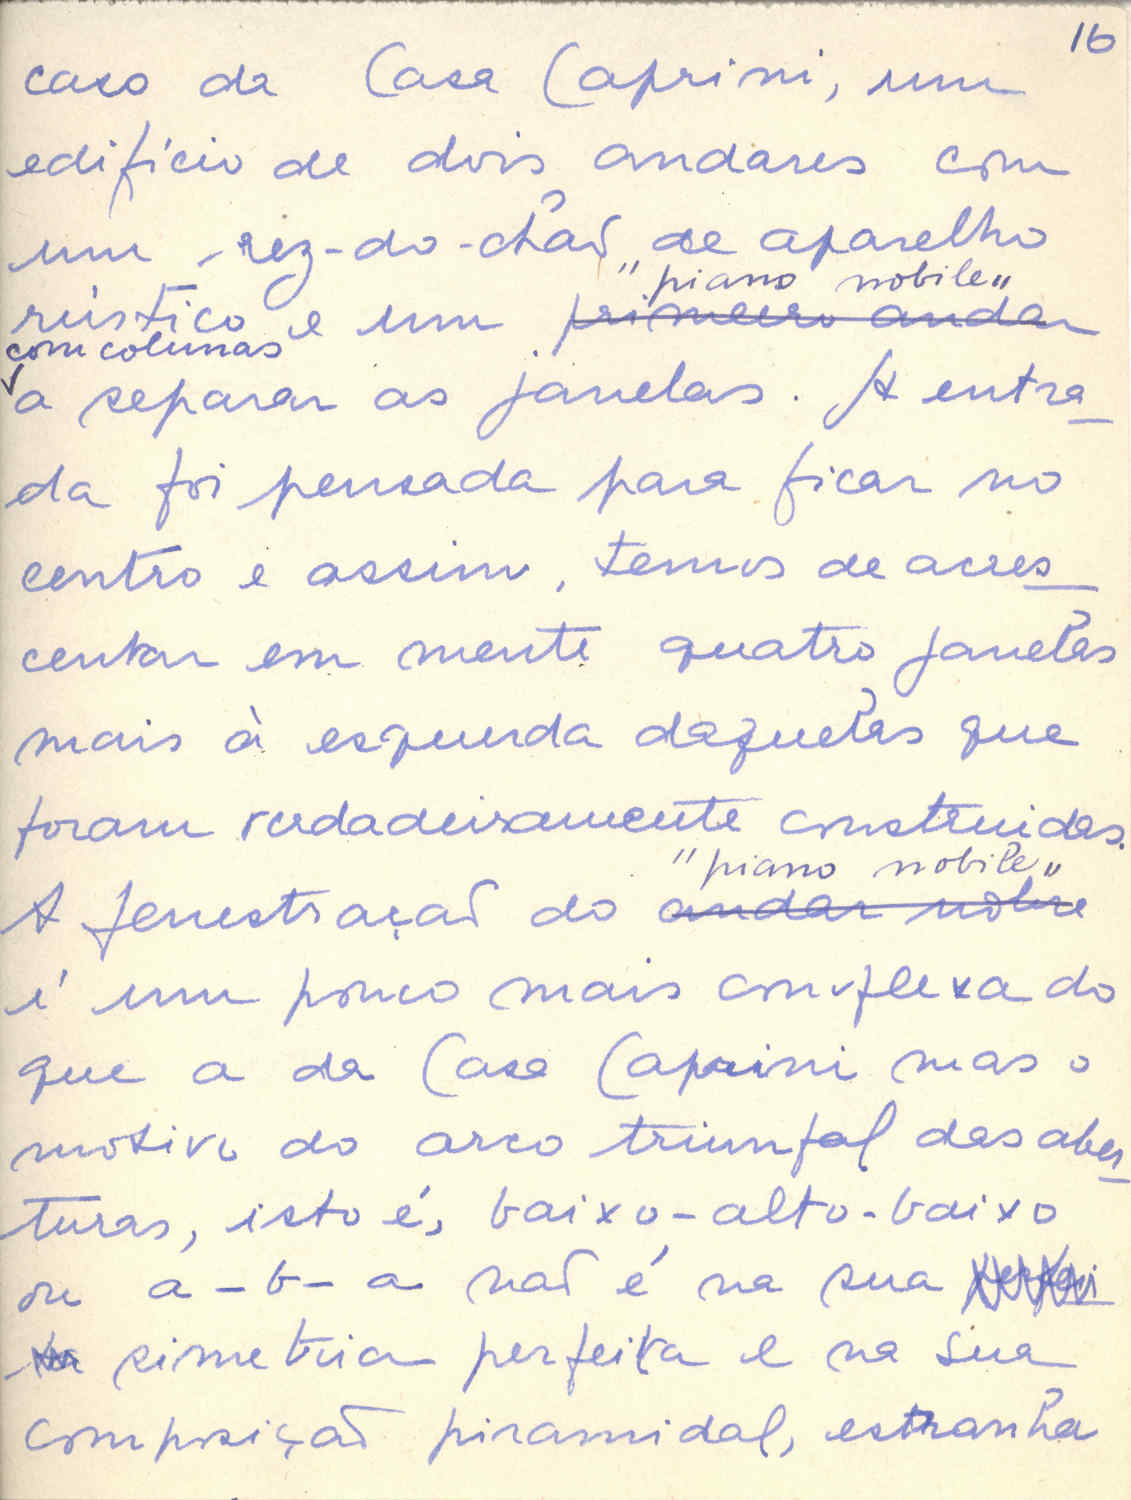 16
caso da Casa Caprini, um
edifício de dois andares com
um rez-do-chão de aparelho
"piano nobile"
rústico e um primeiro andar
com colunas
a separar as janelas. A entra
da foi pensada para ficar no
centro e assim, temos de acres
centar em mente quatro janelas
mais à esquerda daquelas que
foram verdadeiramente construidas.
"piano nobile"
A fenestração do andar nobre
é um pouco mais complexa do
que a da Casa Caprini mas o
motivo do arco triunfal das aber
turas, isto é, baixo-alto-baixo
ou a-b-a não é na sua
simetria perfeita e na sua
composição piramidal, estranha